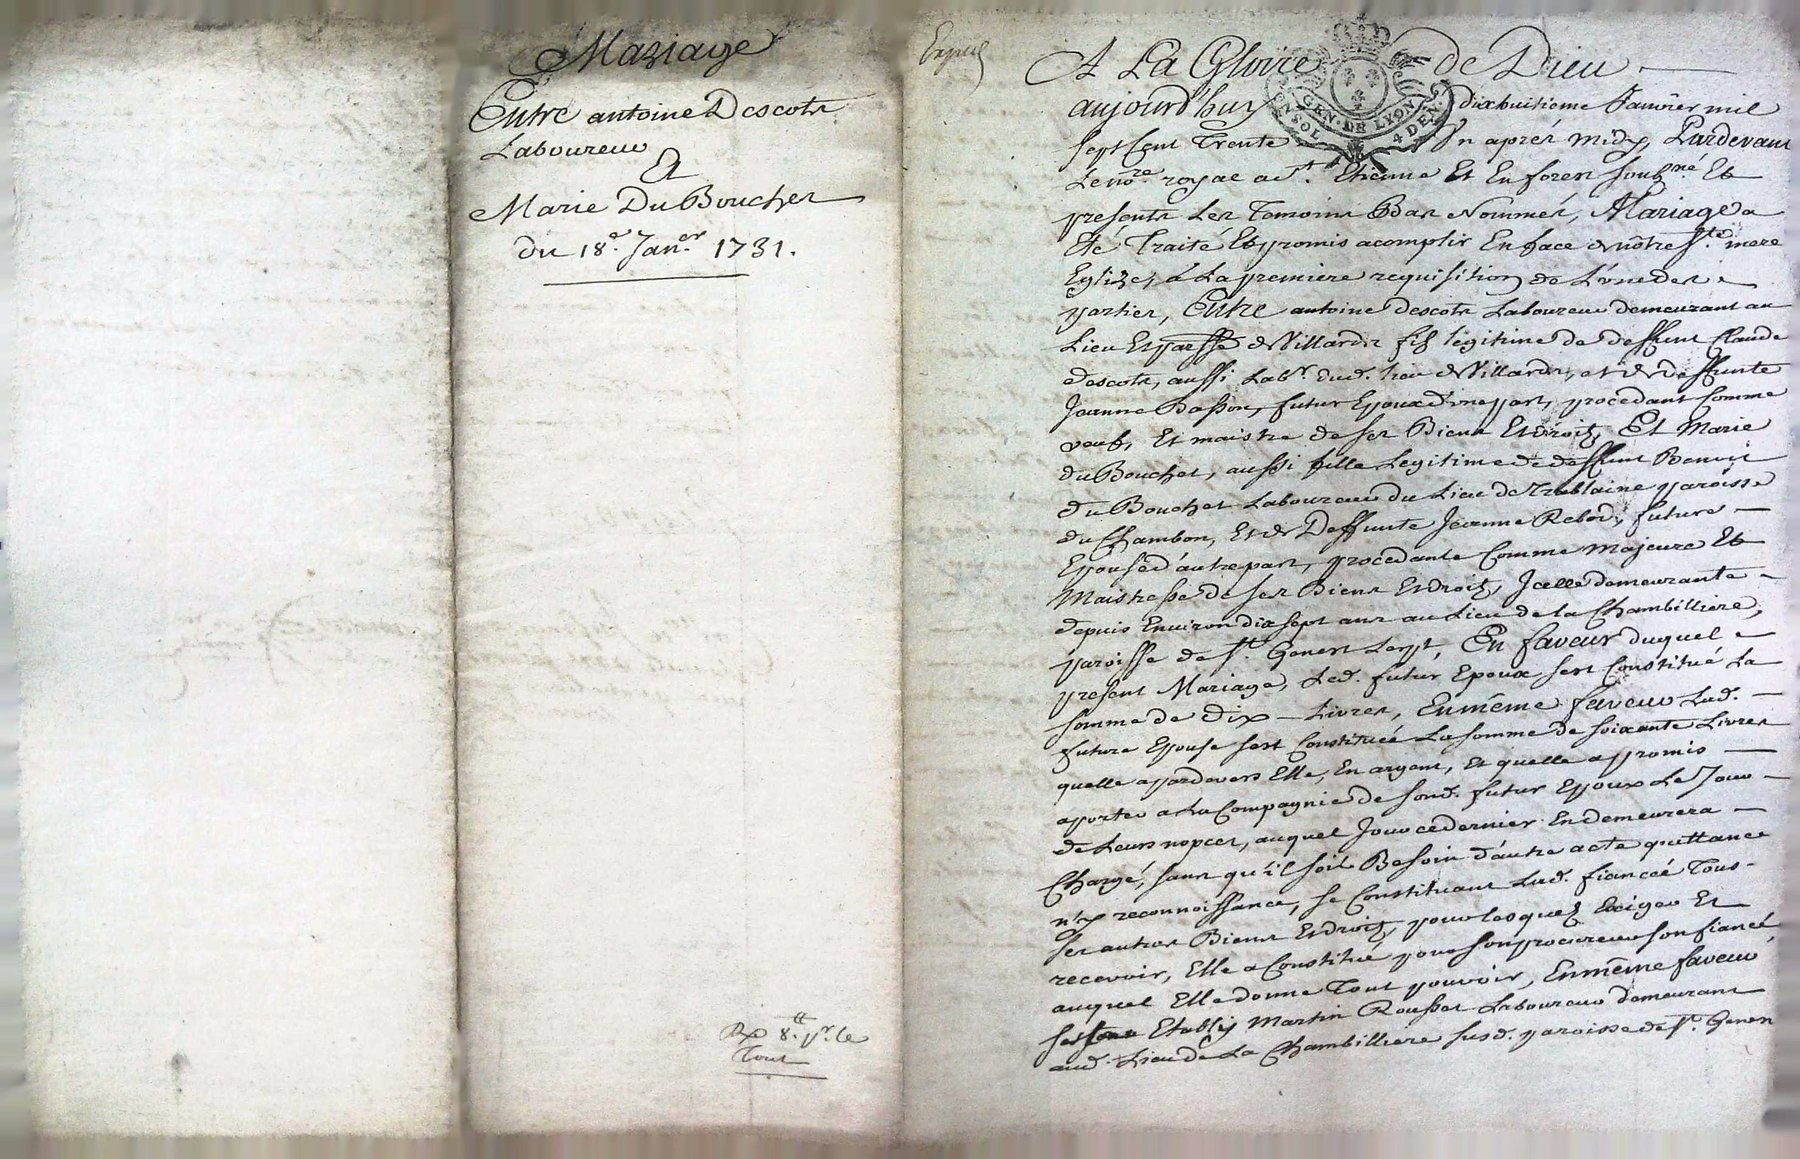 Mariage
Entre antoine Descots
Laboureur
Et
Marie Du Bouchet
du 18e. Janer. 1731.
Rx 8.tt pr. le
Tout
A La Gloire de Dieu
GEN. DE LYON
4 DEN.
aujourd'huy dixhuitieme Janvier mil
sept Cent Trente Un aprés midy, Pardevant
Le nore. royal a St. Etienne Et En forest soubsné. Et
presents Les Temoins Bas Nommés, Mariage a
Eté Traité Et promis acomplir En face de nôtre Ste. mere
Eglize, à La premiere requisition de L'une des
parties, Entre antoine descots Laboureur demeurant au
Lieu Et parsse de Villards fils légitime de deffunt Claude
descots, aussi Labr. dud. lieu de Villards, et de deffunte
Jeanne Basson, futur Epoux d'une part, procédant comme
veuf, Et maistre de ses Biens Et droits, Et Marie
du Bouchet, aussi fille Legitime de deffunt Benoit
du Bouchet Laboureur du Lieu de Trablaine paroisse
du Chambon, Et de Deffunte Jeanne Rebod, future
Epouse d'autre part, procédante Comme majeure Et
Maistresse de ses Biens Et droits, Icelle demeurante
depuis Environ dix sept ans au Lieu de la Chambilliere,
paroisse de St. Genest Lerpt, En faveur duquel
present Mariage, Led. futur Epoux s'est Constitué La
somme de Dix Livres, En même faveur Lad.
future Epouse s'est Constituée La somme de soixante Livres
quelle a pardevers Elle, En argent, Et quelle a promis
aporter a La Compagnie de sond. futur Epoux Le Jour
de Leurs nopces, auquel Jour ce dernier En demeurera
Chargé, sans qu'il soit Besoin d'autre acte quittance
n'y reconnoissance, se Constituant Lad. fiancée Tous
ses autres Biens Et droits, pour lesquels Exiger Et
recevoir, Elle a Constitué pour son procureur son fiancé
auquel Elle donne Tout pouvoir, En même faveur
s'est Etably Martin Rousset Laboureur demeurant
aud. Lieu de La Chambilliere susd. paroisse de St. Genest